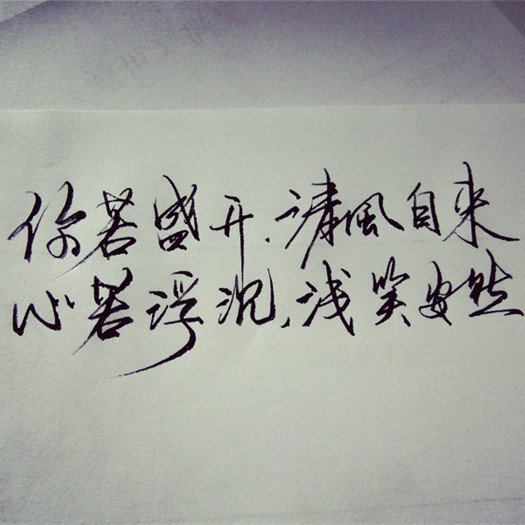 你若盛开.清风自来
心若浮沉,浅笑安然